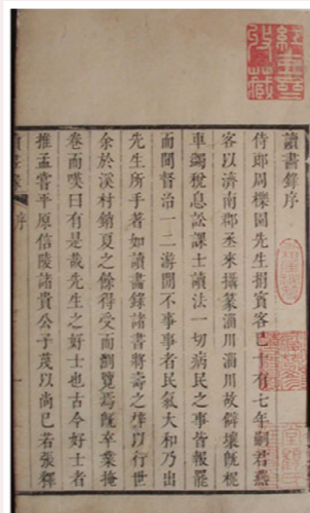 讀畫錄序
侍郎周櫟園先生捐賓客已十有七年嗣君燕
客以濟南郡丞來攝篆淄川淄川故僻壤旣
車蠲稅息訟課士讀法一切病民之事皆報罷
而間督治一二游閒不事事者民氣大和乃出
先生所手著如讀畫錄諸書將壽之以行世
余於溪村銷夏之餘得受而瀏覽焉旣卒業掩
卷而嘆曰有是哉先生之好士也古今好士者
推孟嘗平原信陵諸貴公子茂以尚已若張釋
讀畫錄 序 一